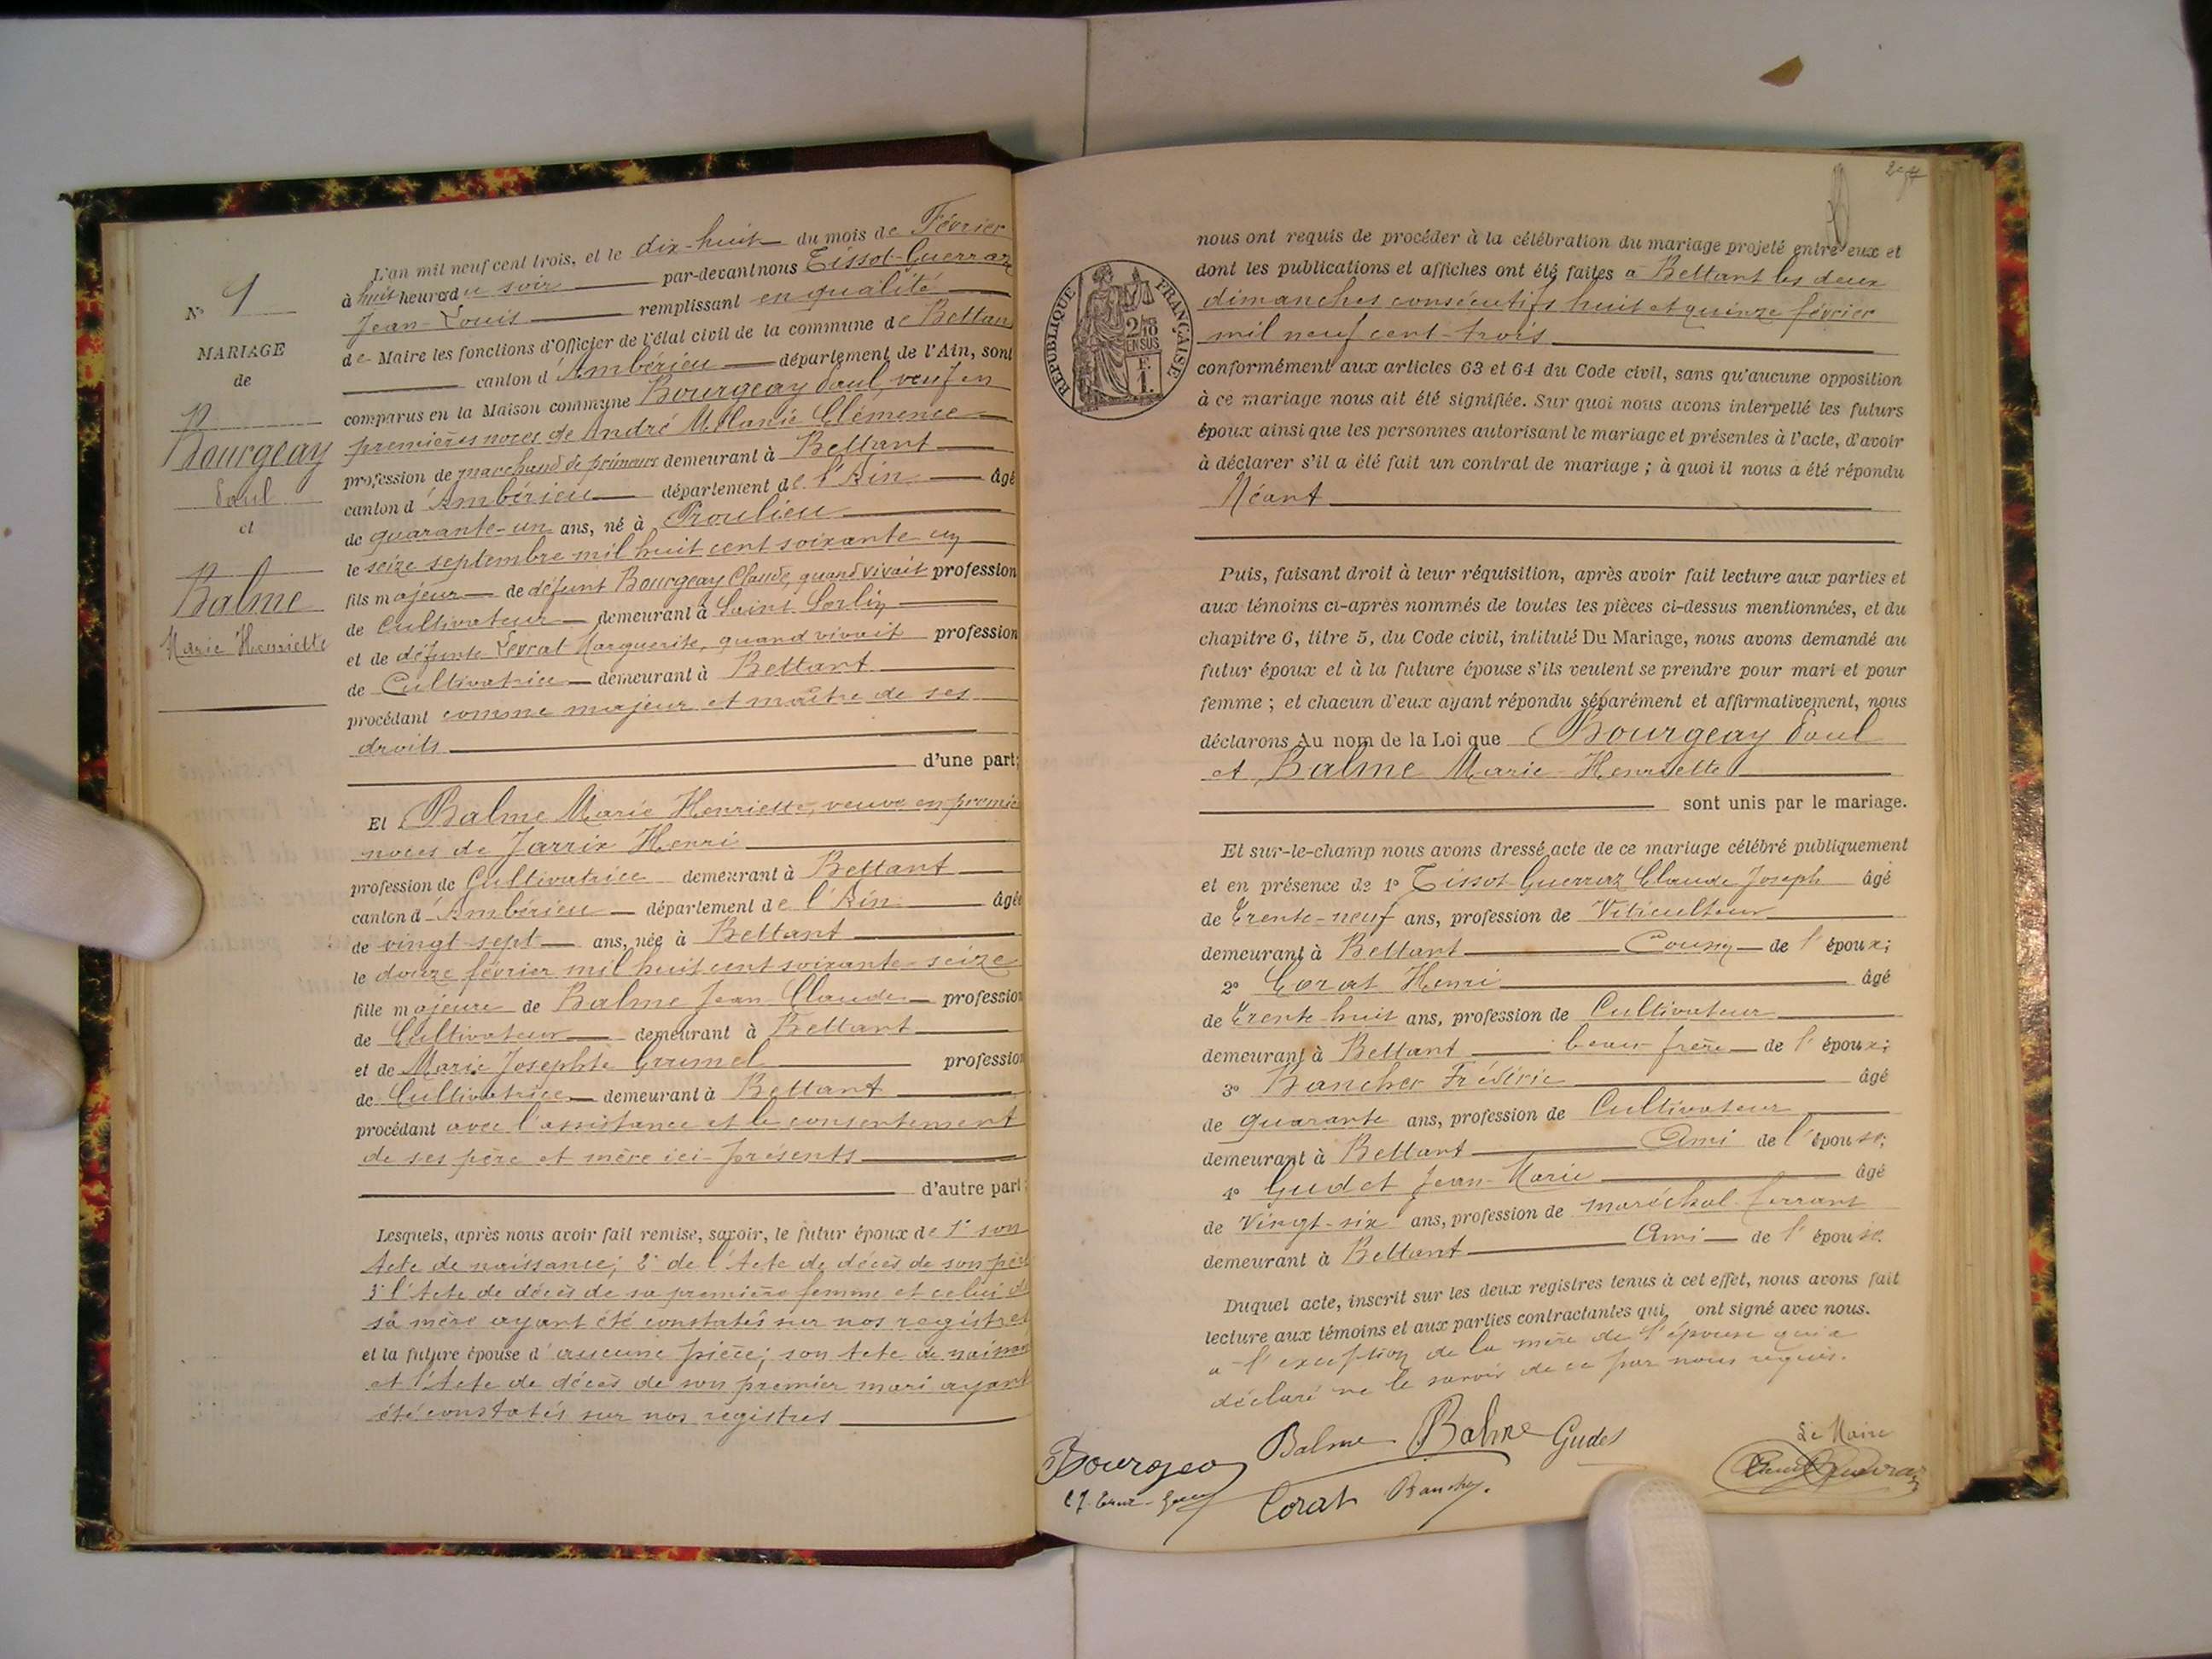 N° 1
MARIAGE
de
Bourgeay
Paul
et
Balme
Marie Henriette
L'an mil neuf cent trois, et le dix-huit du mois de Février
à huit heures du soir par-devant nous Tissot-Guerraz
Jean-Louis remplissant en qualité
de Maire les fonctions d'Officier de l'état civil de la commune de Bettant
canton d'Ambérieu département de l'Ain, sont
comparus en la Maison commune Bourgeay Paul, veuf en
premières noces de André Mélanie Clémence
profession de marchand de primeurs demeurant à Bettant
canton d'Ambérieu département de l'Ain âgé
de quarante-un ans, né à Proulieu
le seize septembre mil huit cent soixante un
fils majeur de défunt Bourgeay Claude, quand vivait profession
de Cultivateur demeurant à Saint Sorlin
et de défunte Levrat Marguerite, quand vivait profession
de Cultivatrice demeurant à Bettant
procédant comme majeur et maître de ses
droits
d'une part;
Et Balme Marie Henriette, veuve en premières
noces de Jarrix Henri
profession de Cultivatrice demeurant à Bettant
canton d'Ambérieu département de l'Ain âgée
de vingt-sept ans, née à Bettant
le douze février mil huit cent soixante-seize
fille majeure de Balme Jean Claude profession
de Cultivateur demeurant à Bettant
et de Marie Josephte Grumel profession
de Cultivatrice demeurant à Bettant
procédant avec l'assistance et le consentement
de ses père et mère ici présents
d'autre part;
Lesquels, après nous avoir fait remise, savoir, le futur époux de 1° son
Acte de naissance; 2° de l'Acte de décès de son père
3° l'Acte de décès de sa première femme et celui de
sa mère ayant été constatés sur nos registres
et la future épouse d'aucune pièce; son Acte de naissance
et l'Acte de décès de son premier mari ayant
été constatés sur nos registres
RÉPUBLIQUE FRANÇAISE
2/10 EN SUS
F. 1.
nous ont requis de procéder à la célébration du mariage projeté entre eux et
dont les publications et affiches ont été faites à Bettant les deux
dimanches consécutifs huit et quinze février
mil neuf cent-trois
conformément aux articles 63 et 64 du Code civil, sans qu'aucune opposition
à ce mariage nous ait été signifiée. Sur quoi nous avons interpellé les futurs
époux ainsi que les personnes autorisant le mariage et présentes à l'acte, d'avoir
à déclarer s'il a été fait un contrat de mariage; à quoi il nous a été répondu
Néant
Puis, faisant droit à leur réquisition, après avoir fait lecture aux parties et
aux témoins ci-après nommés de toutes les pièces ci-dessus mentionnées, et du
chapitre 6, titre 5, du Code civil, intitulé Du Mariage, nous avons demandé au
futur époux et à la future épouse s'ils veulent se prendre pour mari et pour
femme; et chacun d'eux ayant répondu séparément et affirmativement, nous
déclarons Au nom de la Loi que Bourgeay Paul
et Balme Marie-Henriette
sont unis par le mariage.
Et sur-le-champ nous avons dressé acte de ce mariage célébré publiquement
et en présence de 1° Tissot-Guerraz Claude Joseph âgé
de Trente-neuf ans, profession de Viticulteur
demeurant à Bettant Cousin de l'époux;
2° Corat Henri âgé
de Trente-huit ans, profession de Cultivateur
demeurant à Bettant beau-frère de l'époux;
3° Banchet Frédéric âgé
de quarante ans, profession de Cultivateur
demeurant à Bettant Ami de l'épouse;
4° Gudet Jean-Marie âgé
de Vingt-six ans, profession de maréchal-ferrant
demeurant à Bettant Ami de l'épouse.
Duquel acte, inscrit sur les deux registres tenus à cet effet, nous avons fait
lecture aux témoins et aux parties contractantes qui ont signé avec nous.
a l'exception de la mère de l'épouse qui a
déclaré ne le savoir de ce par nous requis.
Bourgeay Balme Balme Gudet
Corat Banchet
Le Maire